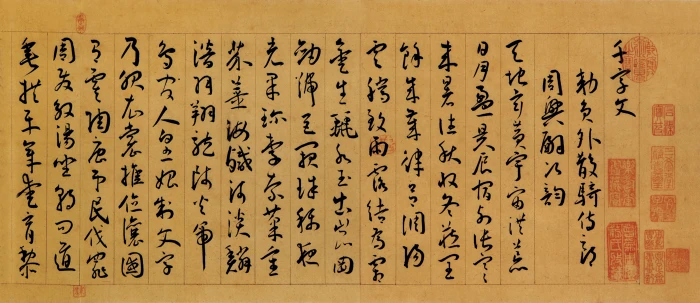 千字文
勅員外散騎侍郎
周興嗣次韻
天地玄黃宇宙洪荒
日月盈昃辰宿列張寒
來暑往秋收冬藏閏
餘成歲律呂調陽
雲騰致雨露結為霜
金生麗水玉出崑岡
劍號巨闕珠稱夜
光果珍李柰菜重
芥薑海鹹河淡鱗
潛羽翔龍師火帝
鳥官人皇始制文字
乃服衣裳推位讓國
有虞陶唐弔民伐罪
周發殷湯坐朝問道
垂拱平章愛育黎